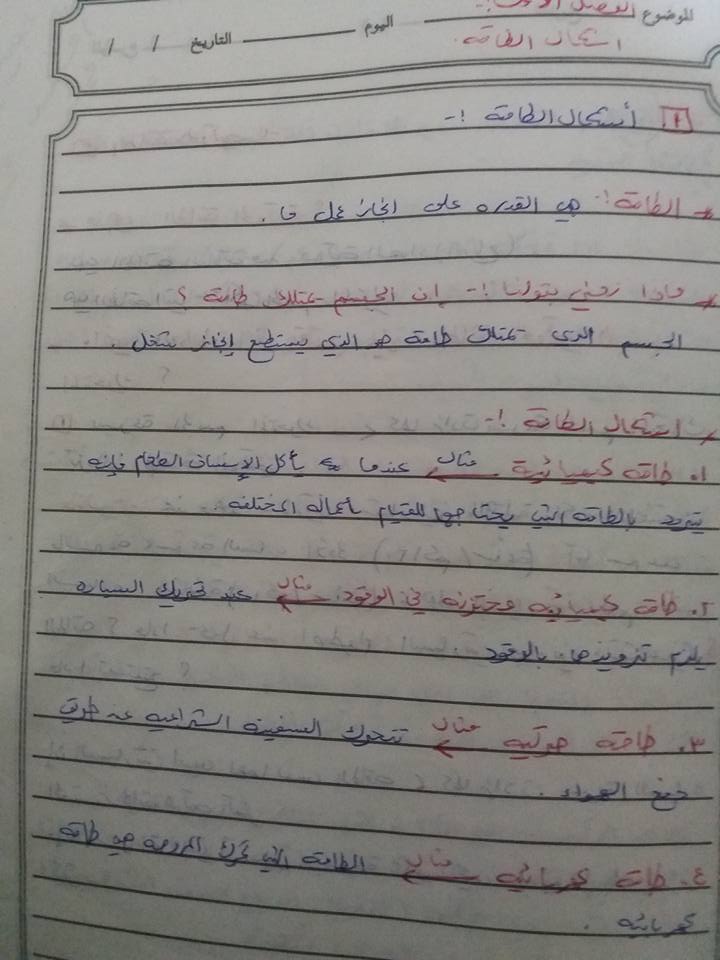 الموضوع الفصل الأول :- اليوم التاريخ / /
اشكال الطاقة.
1 أشكال الطاقة :-
* الطاقة : هي القدره على انجاز عمل ما .
* ماذا نعني بقولنا :- إن الجسم يمتلك طاقة ؟
الجسم الذي يمتلك طاقة هو الذي يستطيع إنجاز شغل .
* اشكال الطاقة :-
١. طاقة كيميائية مثال عندما يأكل الإنسان الطعام فإنه
يتزود بالطاقة التي يحتاجها للقيام بأعماله المختلفه
٢. طاقة كيميائيه مختزنه في الوقود مثال عند تحريك السياره
يلزم تزويدها بالوقود
٣. طاقة حركيه مثال تتحرك السفينة الشراعيه عن طريق
دفع الهواء .
٤. طاقة كهربائيه مثال الطاقة التي تحرك المروحة هو طاقة
كهربائيه .